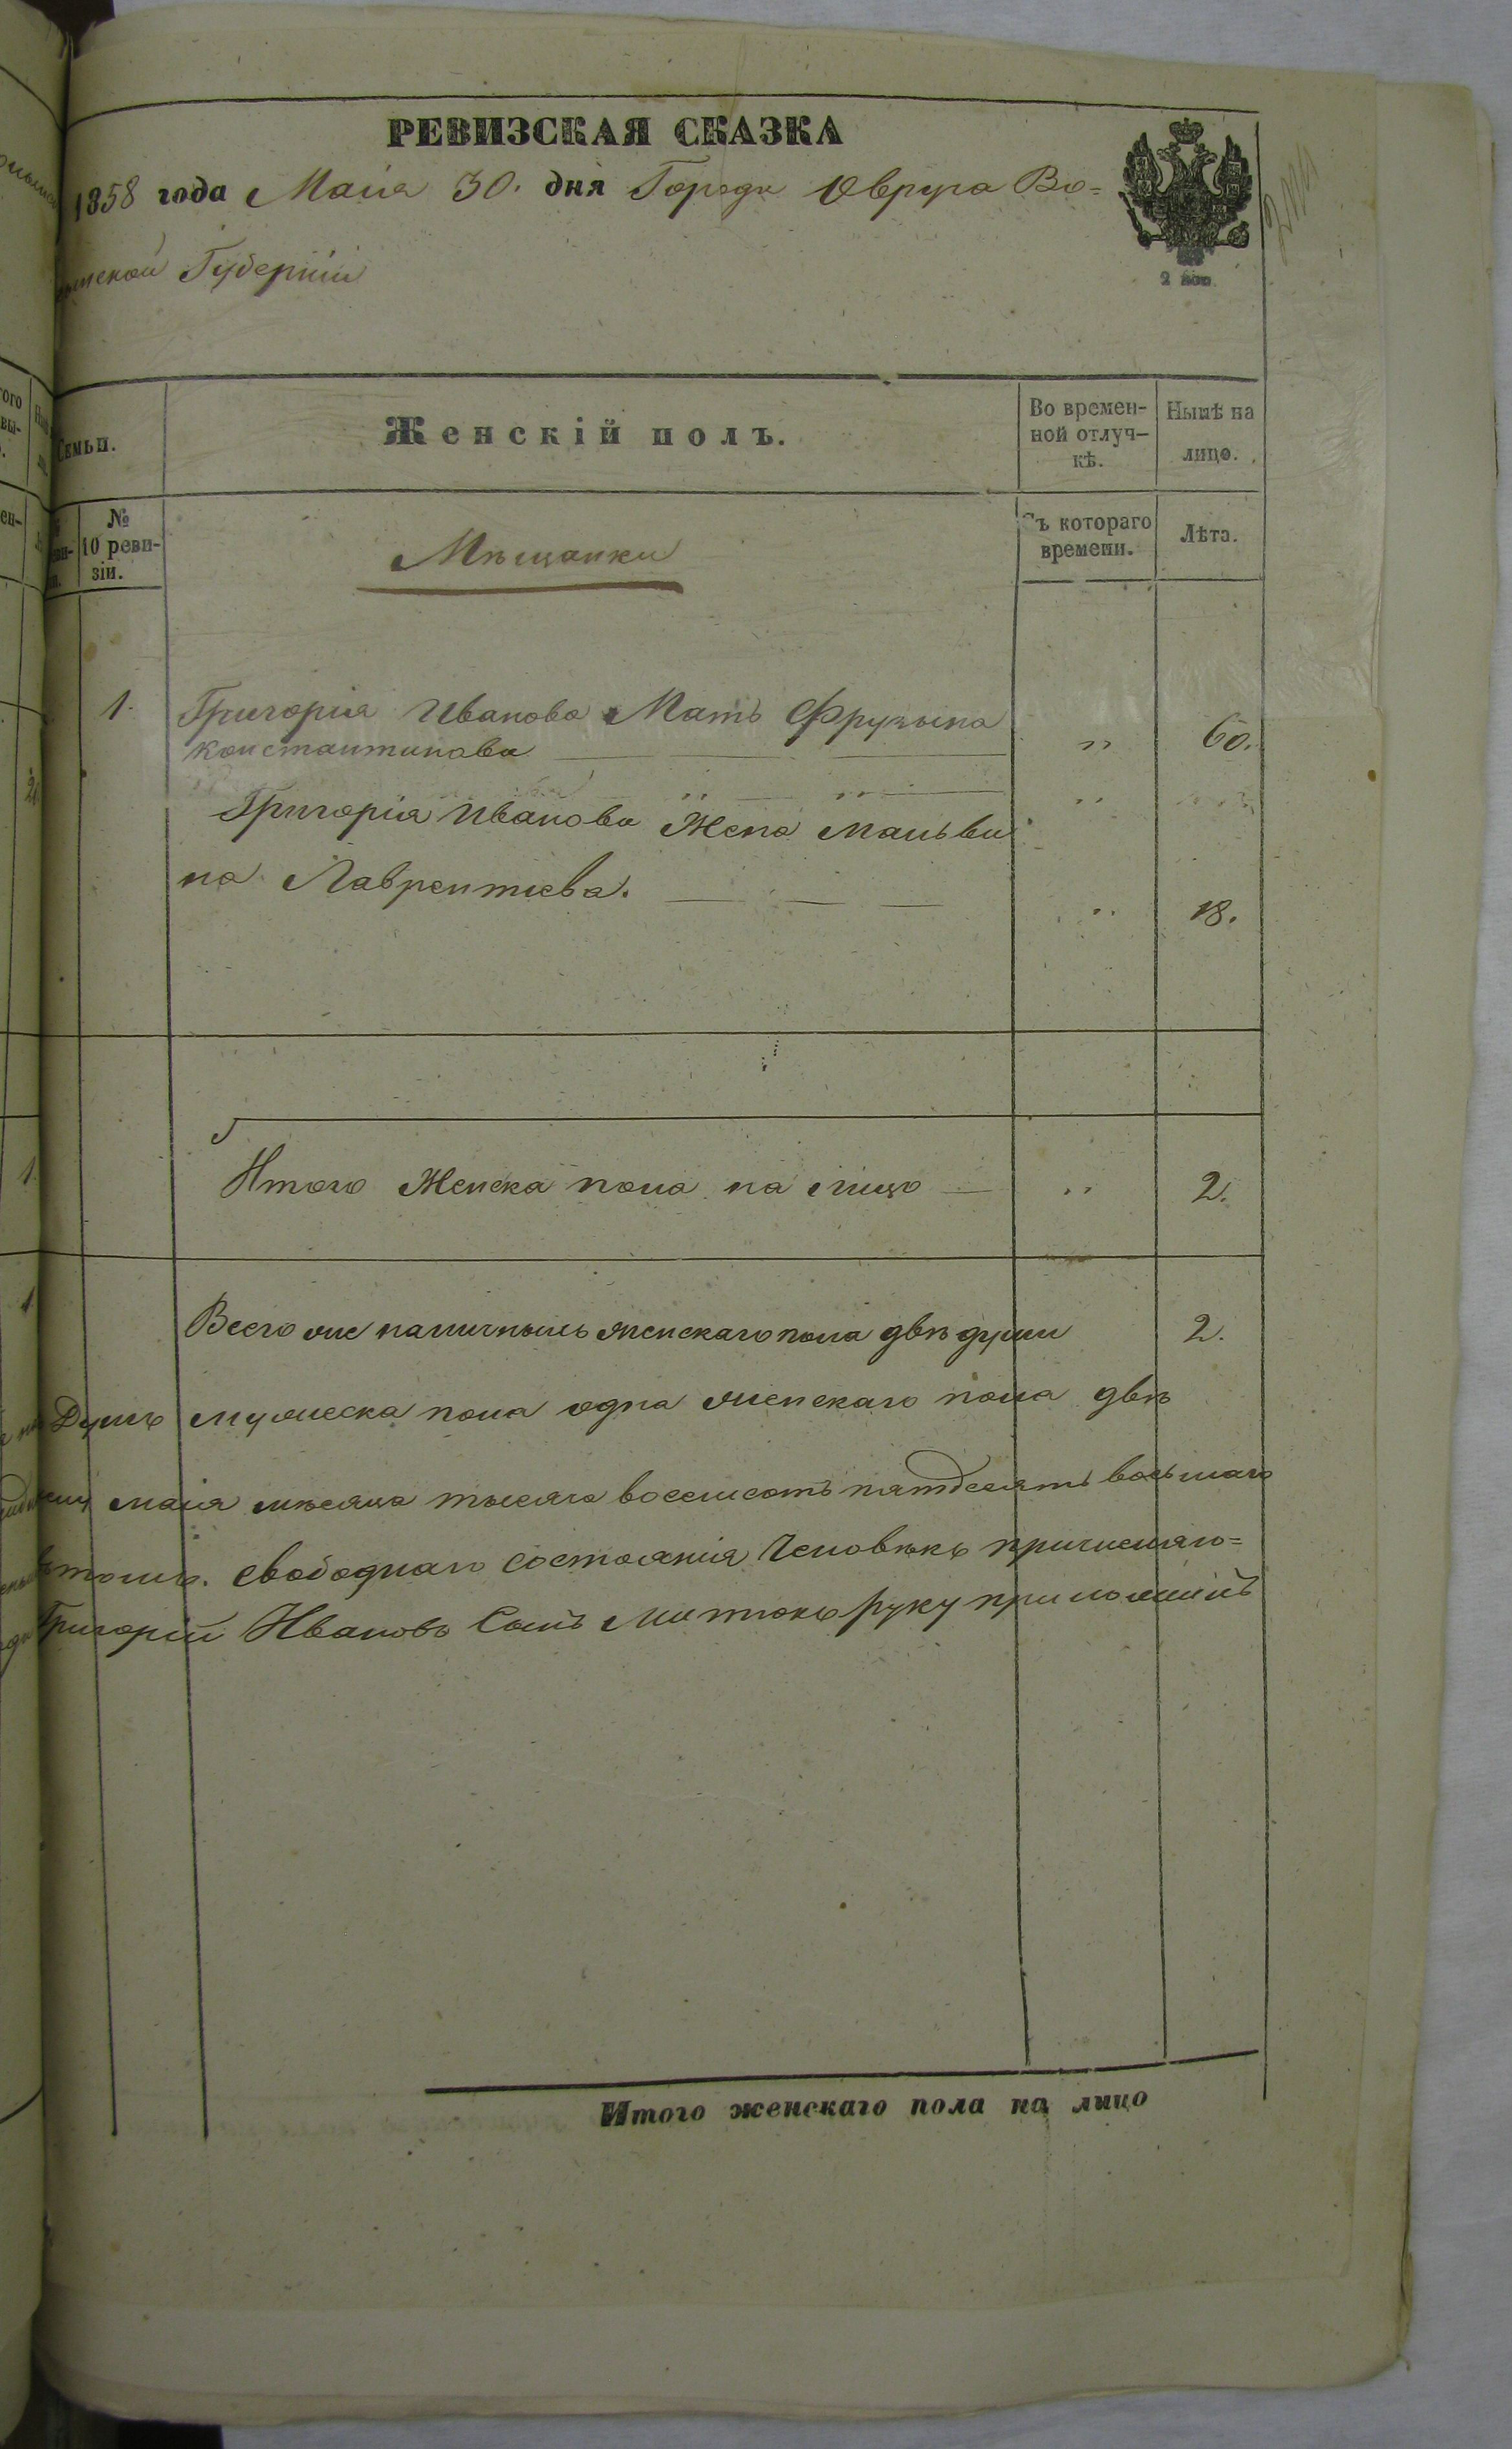 РЕВИЗСКАЯ СКАЗКА
1858 года Маія 30. дня Города Овруча Во=
лынской Губерніи
2 коп.
Семьи.
Женскій полъ.
Во времен-
ной отлуч-
кѣ.
Нынѣ на
лицо.
№
10 реви-
зіи.
Мѣщанки
Съ котораго
времени.
Лѣта.
1. Григорія Иванова Мать Фрузына
Константинова „ 60.
Григорія Иванова Жена Мальви
на Лаврентіева. „ 18.
Итого Женска пола на лицо „ 2.
Всего же наличныхъ женскаго пола двѣ души 2.
Душъ мужеска пола одна женскаго пола двѣ
маія мѣсяца тысяча восемсотъ пятдесятъ восьмаго
свободнаго состоянія Человѣкъ причисляю=
Григорій Ивановъ Сынъ руку приложилъ
Итого женскаго пола на лицо